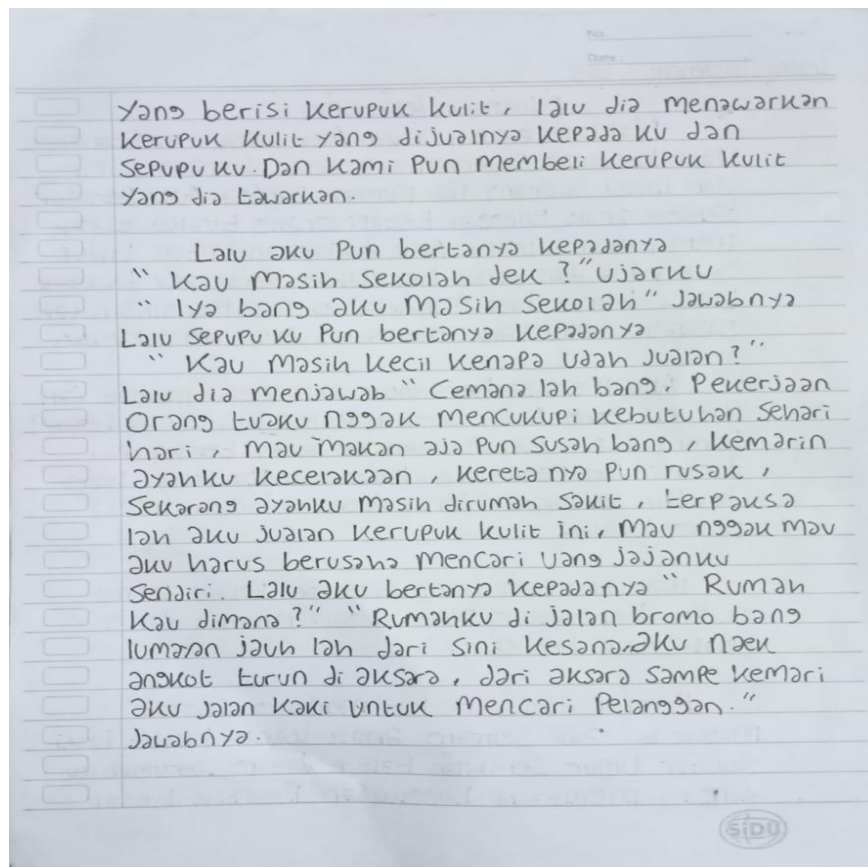 No
Date
yang berisi kerupuk kulit, lalu dia menawarkan
kerupuk kulit yang dijualnya kepada ku dan
sepupu ku. Dan kami pun membeli kerupuk kulit
yang dia tawarkan.
Lalu aku pun bertanya kepadanya
" Kau masih sekolah dek ?" ujarku
" Iya bang aku masih sekolah" jawabnya
Lalu sepupu ku pun bertanya kepadanya
" Kau masih kecil kenapa udah jualan ?"
Lalu dia menjawab " Cemana lah bang. Pekerjaan
orang tuaku nggak mencukupi kebutuhan sehari
hari, mau makan aja pun susah bang, kemarin
ayahku kecelakaan, kereta nya pun rusak,
sekarang ayahku masih dirumah sakit, terpaksa
lah aku jualan kerupuk kulit ini, mau nggak mau
aku harus berusaha mencari uang jajanku
sendiri. Lalu aku bertanya kepadanya " Rumah
kau dimana ?" " Rumahku di jalan bromo bang
lumayan jauh lah dari sini kesana, aku naek
angkot turun di aksara, dari aksara sampe kemari
aku jalan kaki untuk mencari pelanggan."
Jawabnya.
SiDU